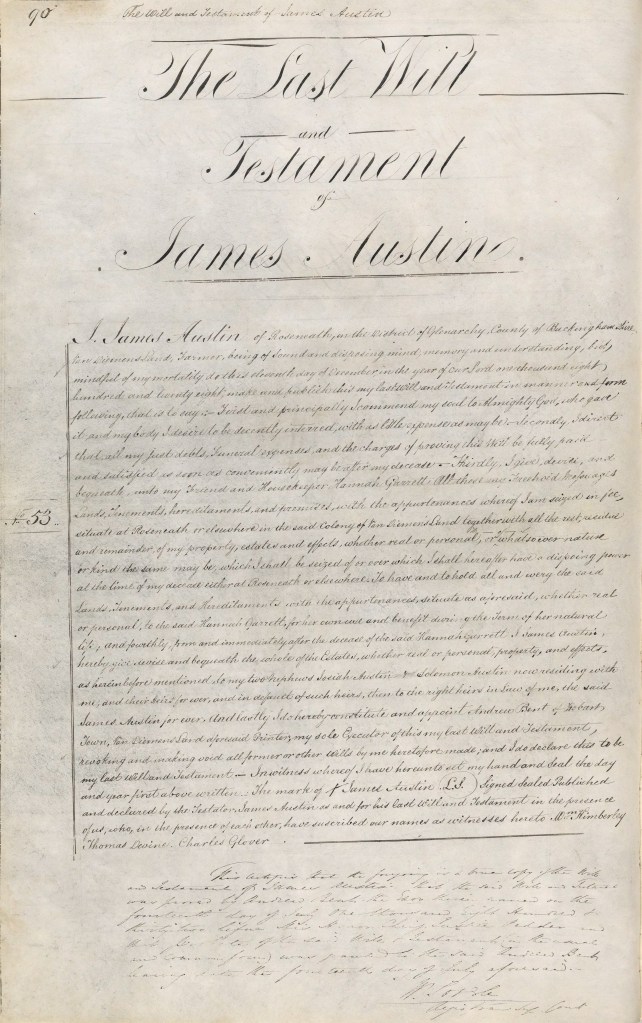 90
The Will and Testament of James Austin
The Last Will
and
Testament
of
James Austin.
I, James Austin of Roseneath, in the District of Glenarchy, County of Buckinghamshire
Van Diemens Land, Farmer, being of Sound and disposing mind, memory and understanding, but
mindful of my mortality, do this eleventh day of December in the year of our Lord one thousand eight
hundred and twenty eight, make and publish this my last Will and Testament in manner and form
following, that is to say:- First and principally I commend my soul to Almighty God, who gave
it and my body I desire to be decently interred, with as little expense as may be:- Secondly, I direct
that all my just debts, Funeral expenses, and the charges of proving this Will be fully paid
and satisfied as soon as conveniently may be after my decease:- Thirdly, I give, devise, and
bequeath, unto my Friend and Housekeeper Hannah Garrett All those my Freehold Messuages
Lands, Tenements, hereditaments, and premises, with the appurtenances whereof I am seized in fee,
No. 53.
situate at Roseneath or elsewhere in the said Colony of Van Diemens Land together with all the rest, residue
and remainder, of my property, estates and effects, whether real or personal, or whatsoever nature
or kind the same may be, which I shall be seized of or over which I shall hereafter have a disposing power
at the time of my decease either at Roseneath or elsewhere: To have and to hold all and every the said
Lands, Tenements, and Hereditaments with the appurtenances, situate as aforesaid, whether real
or personal, to the said Hannah Garrett, for her own use and benefit during the Term of her natural
life, and fourthly, from and immediately after the decease of the said Hannah Garrett I James Austin,
hereby give devise and bequeath the whole of the Estates, whether real or personal property, and effects,
as herein before mentioned to my two nephews Josiah Austin & Solomon Austin now residing with
me, and their heirs for ever, and in default of such heirs, then to the right heirs in Law of me, the said
James Austin for ever. And lastly I do hereby constitute and appoint Andrew Bent of Hobart
Town, Van Diemens Land aforesaid Printer, my sole Executor of this my last Will and Testament,
revoking and making void all former or other Wills by me heretofore made; and I do declare this to be
my last Will and Testament — In witness whereof I have hereunto set my hand and Seal the day
and year first above written – The mark of X James Austin (L.S.) Signed Sealed Published
and declared by the Testator James Austin as and for his last Will and Testament in the presence
of us, who, in the presence of each other, have suscribed our names as witnesses hereto Wm. Kimberley
Thomas Devine. Charles Glover
This certifies that the foregoing is a true copy of the Will
and Testament of James Austin that the said Will and Testament
was proved by Andrew Bent the Exor therein named on the
fourteenth day of July One thousand eight Hundred &
thirty two before
Will
was granted to the said Andrew Bent
the fourteenth day of July aforesaid.
Registrar Sup Court